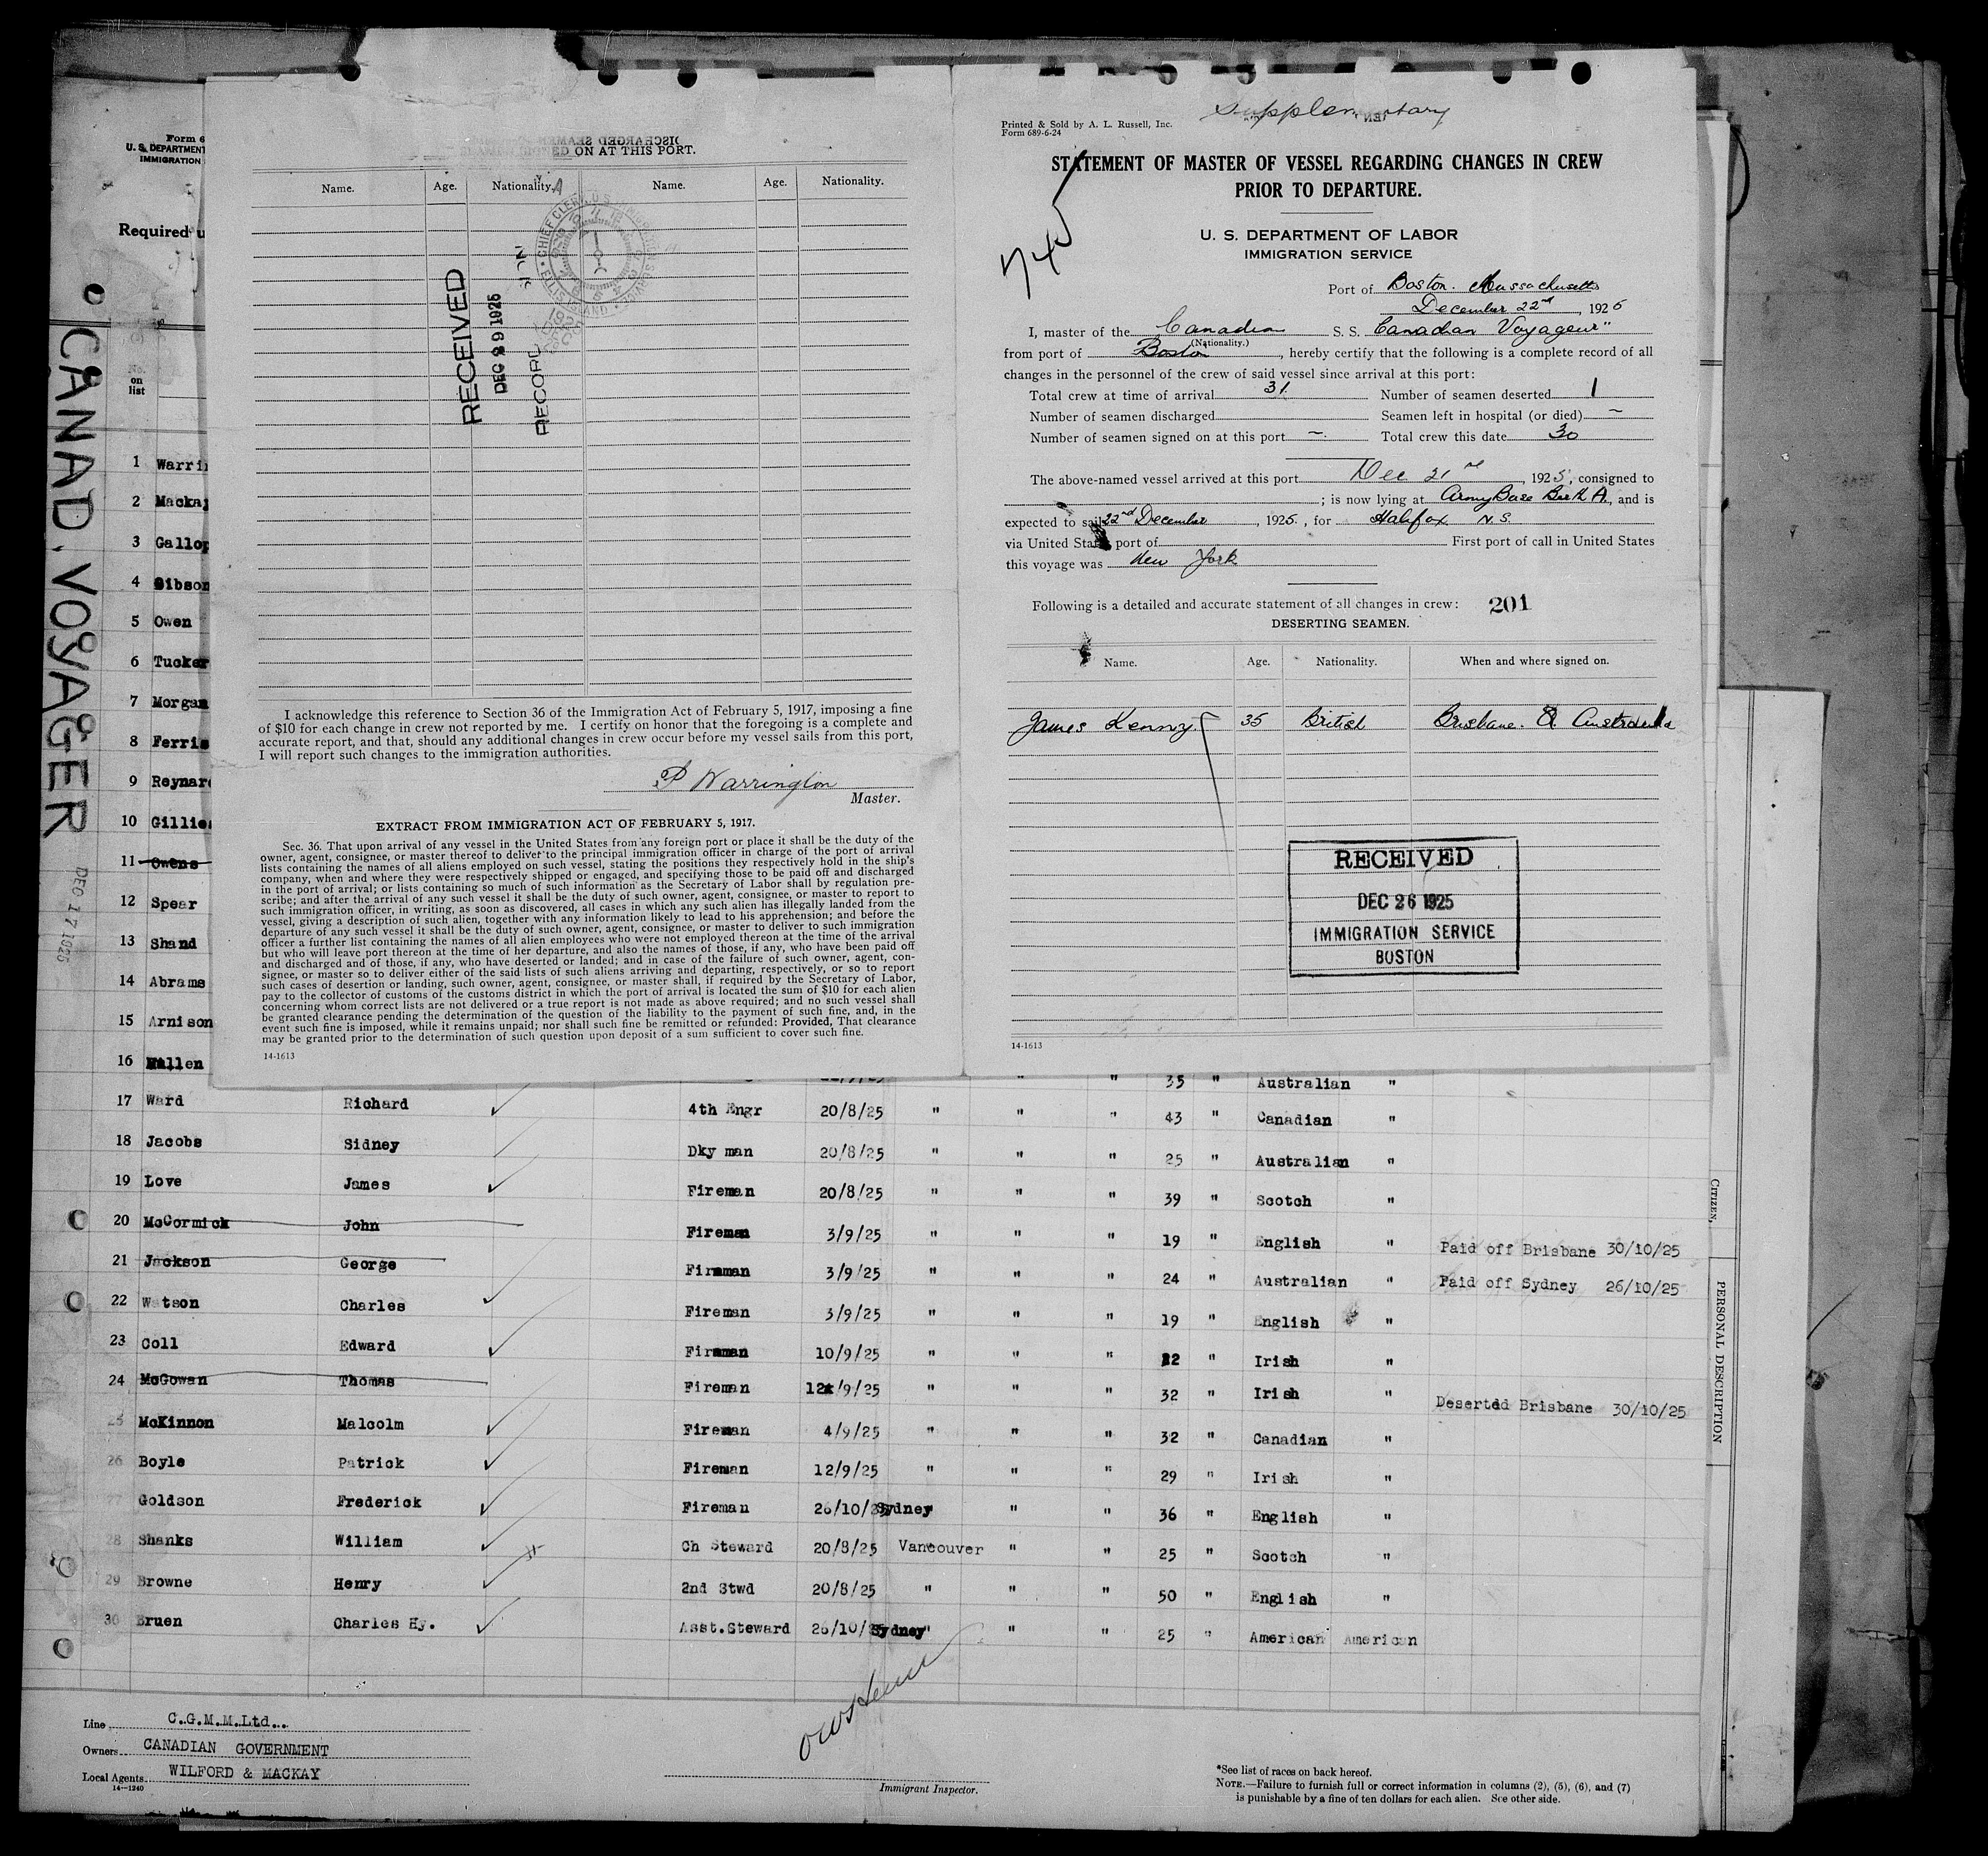 Form 6
U. S. DEPARTMENT
IMMIGRATION
Required u
No.
on
list
CANAD. VOYAGER
DEC 17 1925
DISCHARGED SEAMEN
ED ON AT THIS PORT.
Name. Age. Nationality. Name. Age. Nationality.
CHIEF CLERK, U. S. IMMIGRATION SERVICE ELLIS ISLAND
RECEIVED
DEC 29 1925
RECORD
I acknowledge this reference to Section 36 of the Immigration Act of February 5, 1917, imposing a fine
of $10 for each change in crew not reported by me. I certify on honor that the foregoing is a complete and
accurate report, and that, should any additional changes in crew occur before my vessel sails from this port,
I will report such changes to the immigration authorities.
P Warrington
Master.
EXTRACT FROM IMMIGRATION ACT OF FEBRUARY 5, 1917.
Sec. 36. That upon arrival of any vessel in the United States from any foreign port or place it shall be the duty of the
owner, agent, consignee, or master thereof to deliver to the principal immigration officer in charge of the port of arrival
lists containing the names of all aliens employed on such vessel, stating the positions they respectively hold in the ship's
company, when and where they were respectively shipped or engaged, and specifying those to be paid off and discharged
in the port of arrival; or lists containing so much of such information as the Secretary of Labor shall by regulation pre-
scribe; and after the arrival of any such vessel it shall be the duty of such owner, agent, consignee, or master to report to
such immigration officer, in writing, as soon as discovered, all cases in which any such alien has illegally landed from the
vessel, giving a description of such alien, together with any information likely to lead to his apprehension; and before the
departure of any such vessel it shall be the duty of such owner, agent, consignee, or master to deliver to such immigration
officer a further list containing the names of all alien employees who were not employed thereon at the time of the arrival
but who will leave port thereon at the time of her departure, and also the names of those, if any, who have been paid off
and discharged and of those, if any, who have deserted or landed; and in case of the failure of such owner, agent, con-
signee, or master so to deliver either of the said lists of such aliens arriving and departing, respectively, or so to report
such cases of desertion or landing, such owner, agent, consignee, or master shall, if required by the Secretary of Labor,
pay to the collector of customs of the customs district in which the port of arrival is located the sum of $10 for each alien
concerning whom correct lists are not delivered or a true report is not made as above required; and no such vessel shall
be granted clearance pending the determination of the question of the liability to the payment of such fine, and, in the
event such fine is imposed, while it remains unpaid; nor shall such fine be remitted or refunded: Provided, That clearance
may be granted prior to the determination of such question upon deposit of a sum sufficient to cover such fine.
14-1613
Supplementary
Printed & Sold by A. L. Russell, Inc.
Form 689-6-24
745
STATEMENT OF MASTER OF VESSEL REGARDING CHANGES IN CREW
PRIOR TO DEPARTURE.
U. S. DEPARTMENT OF LABOR
IMMIGRATION SERVICE
Port of Boston. Massachusetts
December 22nd, 1925
I, master of the Canadian S. S. "Canadian Voyageur"
(Nationality.)
from port of Boston, hereby certify that the following is a complete record of all
changes in the personnel of the crew of said vessel since arrival at this port:
Total crew at time of arrival 31. Number of seamen deserted 1
Number of seamen discharged Seamen left in hospital (or died) –
Number of seamen signed on at this port –. Total crew this date 30
The above-named vessel arrived at this port Dec 21, 1925, consigned to
; is now lying at Army Base Berth A., and is
expected to sail 22nd December, 1925., for Halifax N.S.
via United States port of First port of call in United States
this voyage was New York
Following is a detailed and accurate statement of all changes in crew: 201
DESERTING SEAMEN.
Name. Age. Nationality. When and where signed on.
James Kenny. 35 British Brisbane. Australia
RECEIVED
DEC 26 1925
IMMIGRATION SERVICE
BOSTON
14-1613
1 Warri
2 Mackay
3 Gallop
4 Gibson
5 Owen
6 Tucker
7 Morgan
8 Ferris
9 Reynard
10 Gillies
11 Owens
12 Spear
13 Shand
14 Abrams
15 Arnison
16 Millen 35 " Australian "
17 Ward Richard 4th Engr 20/8/25 " " " 43 " Canadian "
18 Jacobs Sidney Dky man 20/8/25 " " " 25 " Australian "
19 Love James Fireman 20/8/25 " " " 39 " Scotch "
20 McCormick John Fireman 3/9/25 " " " 19 " English " Paid off Brisbane 30/10/25
21 Jackson George Fireman 3/9/25 " " " 24 " Australian " Paid off Sydney 26/10/25
22 Watson Charles Fireman 3/9/25 " " " 19 " English "
23 Coll Edward Fireman 10/9/25 " " " 22 " Irish "
24 McGowan Thomas Fireman 12/9/25 " " " 32 " Irish " Deserted Brisbane 30/10/25
25 McKinnon Malcolm Fireman 4/9/25 " " " 32 " Canadian "
26 Boyle Patrick Fireman 12/9/25 " " " 29 " Irish "
27 Goldson Frederick Fireman 26/10/25 Sydney " " 36 " English "
28 Shanks William Ch Steward 20/8/25 Vancouver " " 25 " Scotch "
29 Browne Henry 2nd Stwd 20/8/25 " " " 50 " English "
30 Bruen Charles Hy. Asst.Steward 26/10/25 Sydney " " 25 " American American
CITIZEN,
PERSONAL DESCRIPTION
Line C.G.M.M.Ltd..
Owners CANADIAN GOVERNMENT
Local Agents WILFORD & MACKAY
14—1240
Immigrant Inspector.
*See list of races on back hereof.
NOTE.—Failure to furnish full or correct information in columns (2), (5), (6), and (7)
is punishable by a fine of ten dollars for each alien. See other side.